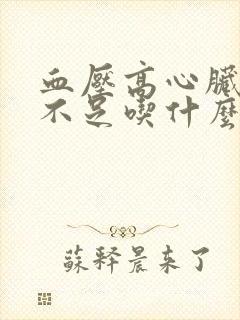 血壓高心臟
不足喫什麼
蘇釋晨来了